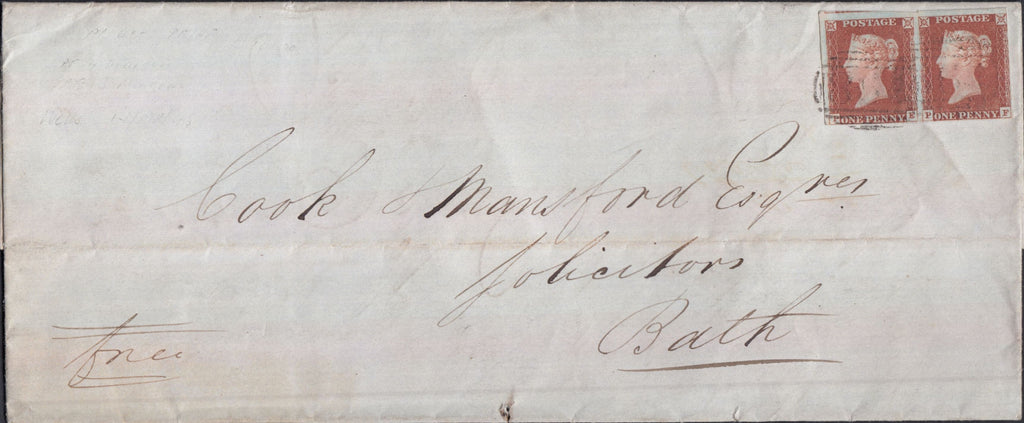 POSTAGE POSTAGE
ONE PENNY E P ONE PENNY F
Cook & Mansford Esqres
Solicitors
Bath
free